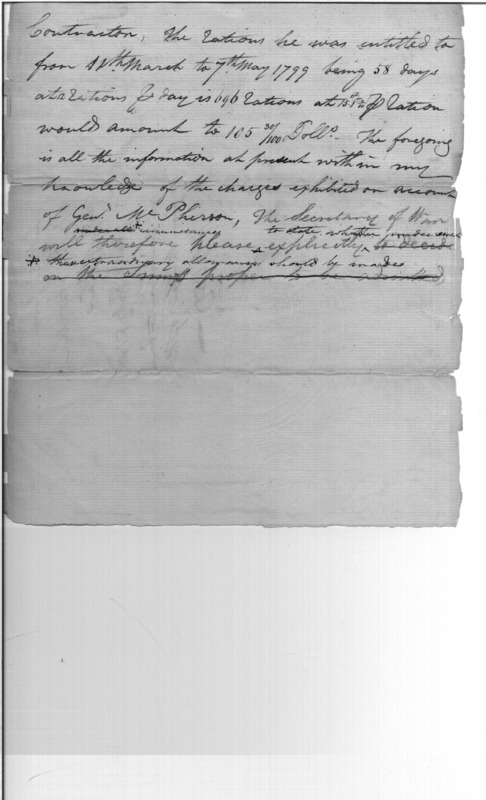 Contractor, The rations he was entitled to
from 11th March to 7th May 1799 being 58 days
at 12 rations ⅌ day is 696 rations at ⅌ ration
would amount to 105 30/100 Dolls. The foregoing
is all the information at present within my
knowledge of the charges exhibited on account
of Genl. McPherson, The Secretary of War
circumstances to state whether under such
will therefore please explicitly to decide
* the extraordinary allowances should be made
on the proper to be admitted,